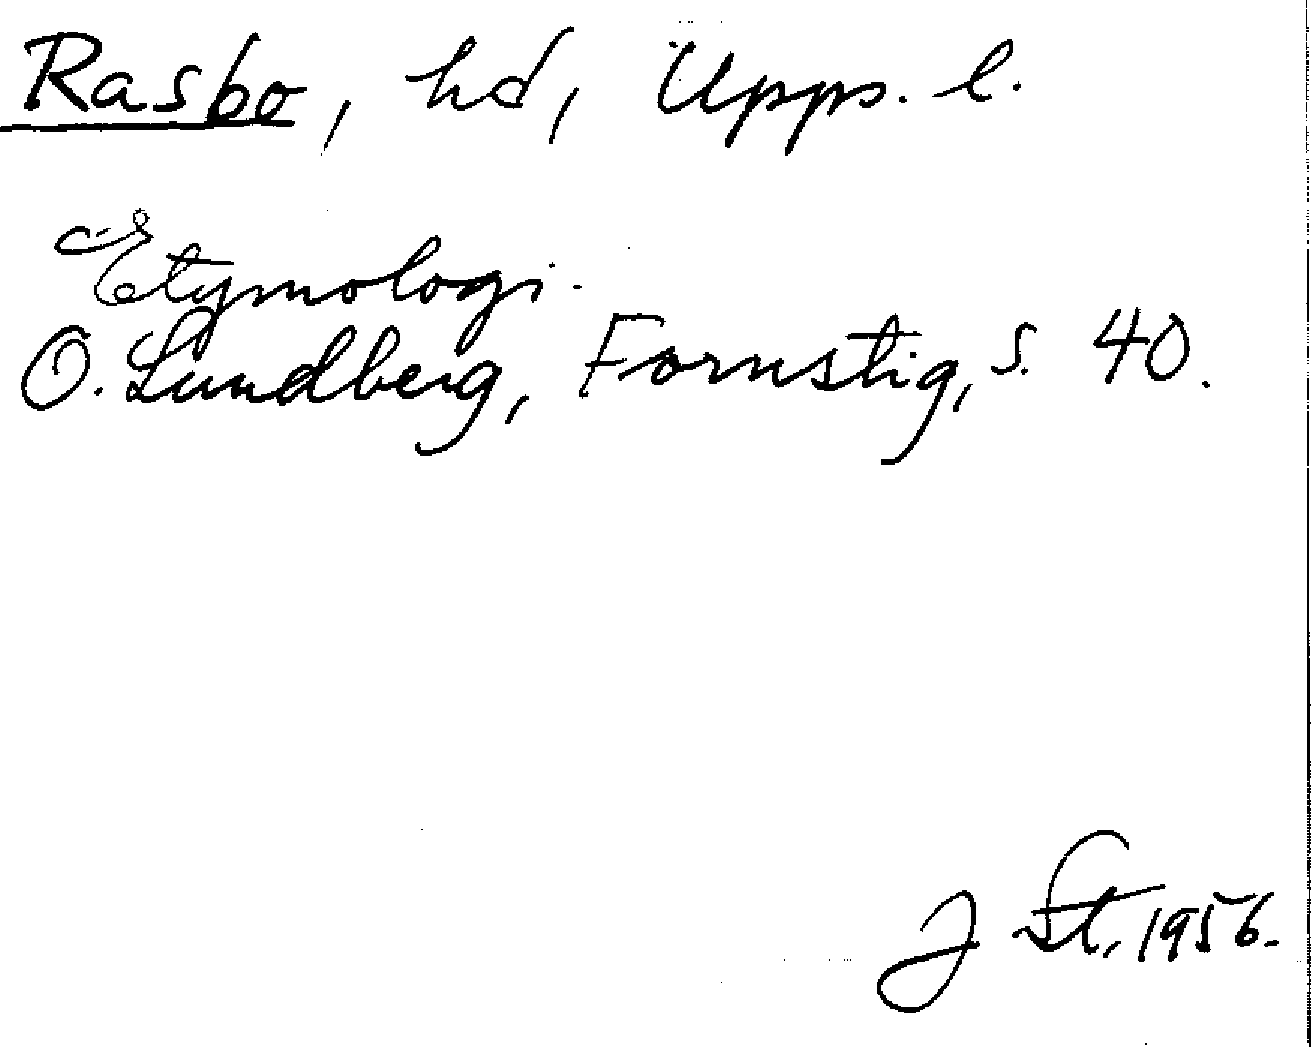 Rasbo, hd, Upps. l.
Etymologi.
O. Lundberg, Fornstig, s. 40.
J St. 1956.